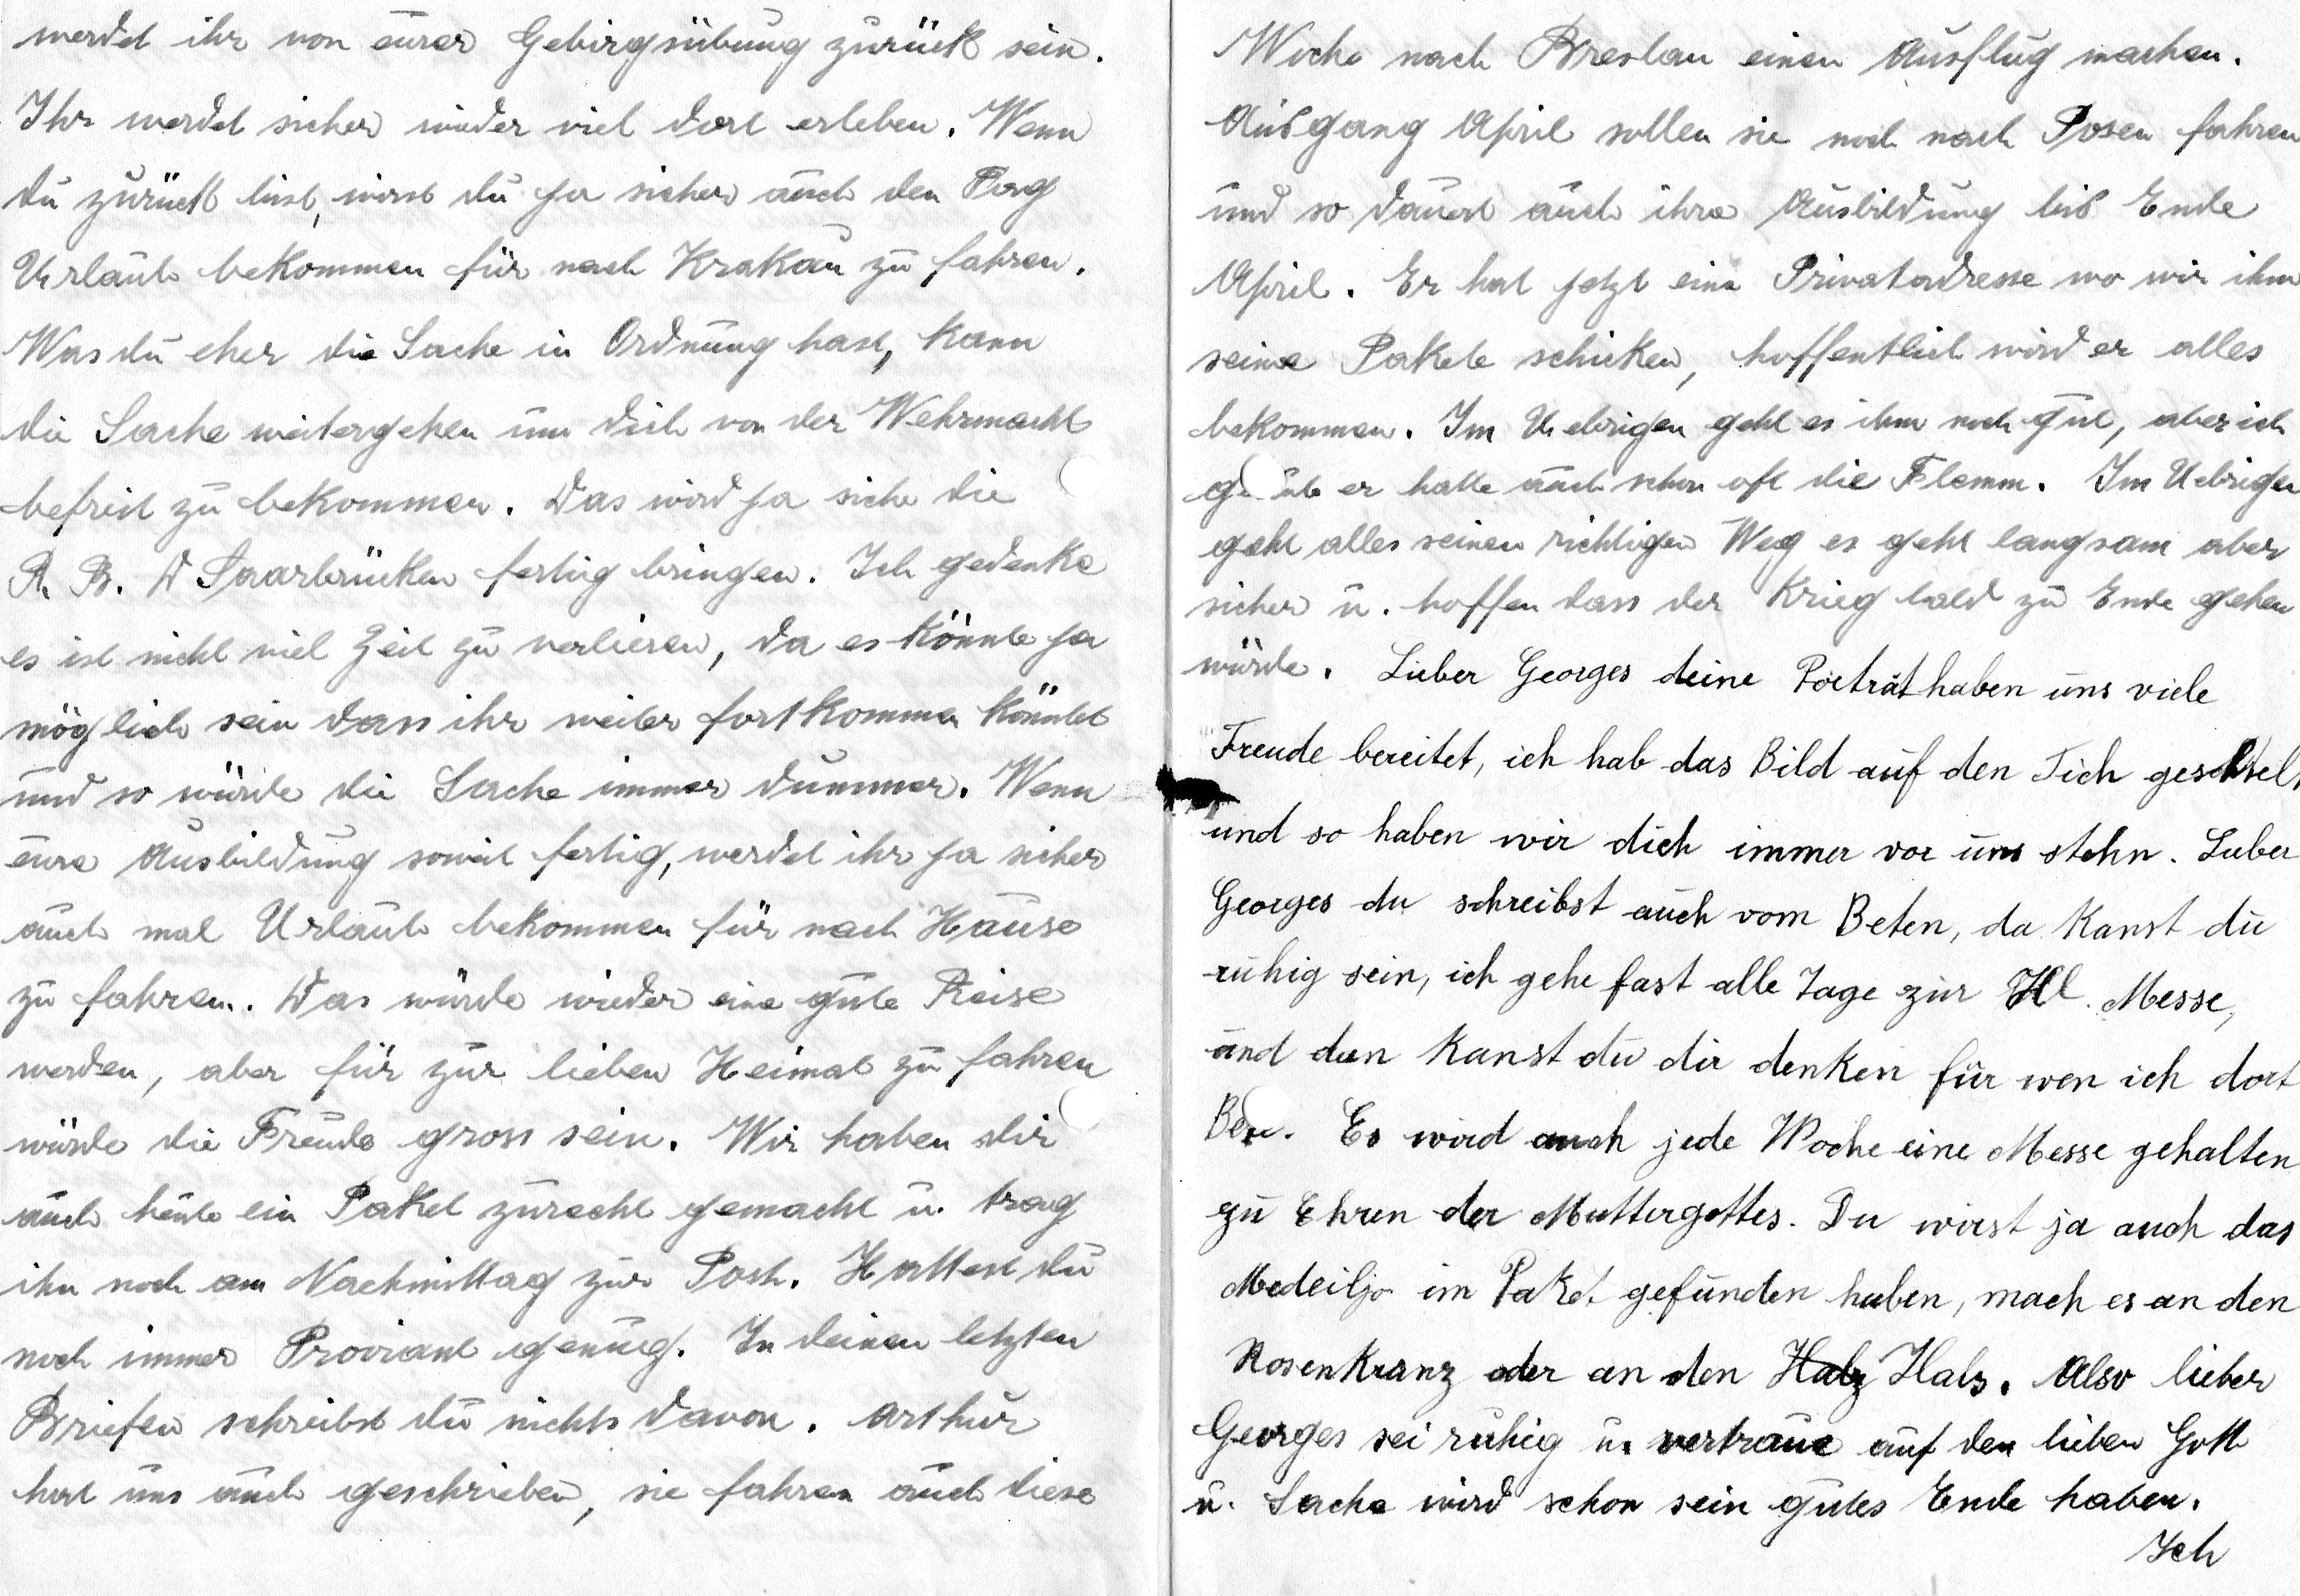 werdet ihr von eurer Gebirgsübung zurück sein.
Ihr werdet sicher wieder viel dort erleben. Wenn
du zurück bist, wirst du ja sicher auch den Tag
Urlaub bekommen für nach Krakau zu fahren.
Was du eher die Sache in Ordnung hast, kann
die Sache weitergehen um dich von der Wehrmacht
befreit zu bekommen. Das wird ja sicher die
R. B. D Saarbrücken fertig bringen. Ich gedenke
es ist nicht viel Zeit zu verlieren, da es könnte ja
möglich sein dass ihr weiter fortkommen könntet
und so würde die Sache immer dummer. Wenn
eure Ausbildung soweit fertig, werdet ihr ja sicher
auch mal Urlaub bekommen für nach Hause
zu fahren. Das würde wieder eine gute Reise
werden, aber für zur lieben Heimat zu fahren
würde die Freude gross sein. Wir haben dir
auch heute ein Paket zurecht gemacht u. trag
ihn noch am Nachmittag zur Post. Hattest du
noch immer Proviant genug. In deinen letzten
Briefen schreibst du nichts davon. Arthur
hat uns auch geschrieben, sie fahren auch diese
Woche nach Breslau einen Ausflug machen.
Ausgang April sollen sie noch nach Posen fahren
und so dauert auch ihre Ausbildung bis Ende
April. Er hat jetzt eine Privatadresse wo wir ihm
seine Pakete schicken, hoffentlich wird er alles
bekommen. Im Uebrigen geht es ihm noch gut, aber ich
er hatte auch schon oft die Flemm. Im Uebrigen
geht alles seinen richtigen Weg es geht langsam aber
sicher u. hoffen dass der Krieg bald zu Ende gehen
würde. Lieber Georges deine Porträt haben uns viele
Freude bereitet, ich hab das Bild auf den Tich gestelt
und so haben wir dich immer vor uns stehn. Lieber
Georges du schreibst auch vom Beten, da kanst du
ruhig sein, ich gehe fast alle Tage zur Hl. Messe,
und dan kanst du dir denken für wen ich dort
Es wird auch jede Woche eine Messe gehalten
zu Ehren der Muttergottes. Du wirst ja auch das
Medeiljo im Paket gefunden haben, mach es an den
Rosenkranz oder an den Halz Hals. Also lieber
Georges sei ruhig u. vertraue auf den lieben Gott
u. Sache wird schon sein gutes Ende haben.
Ich